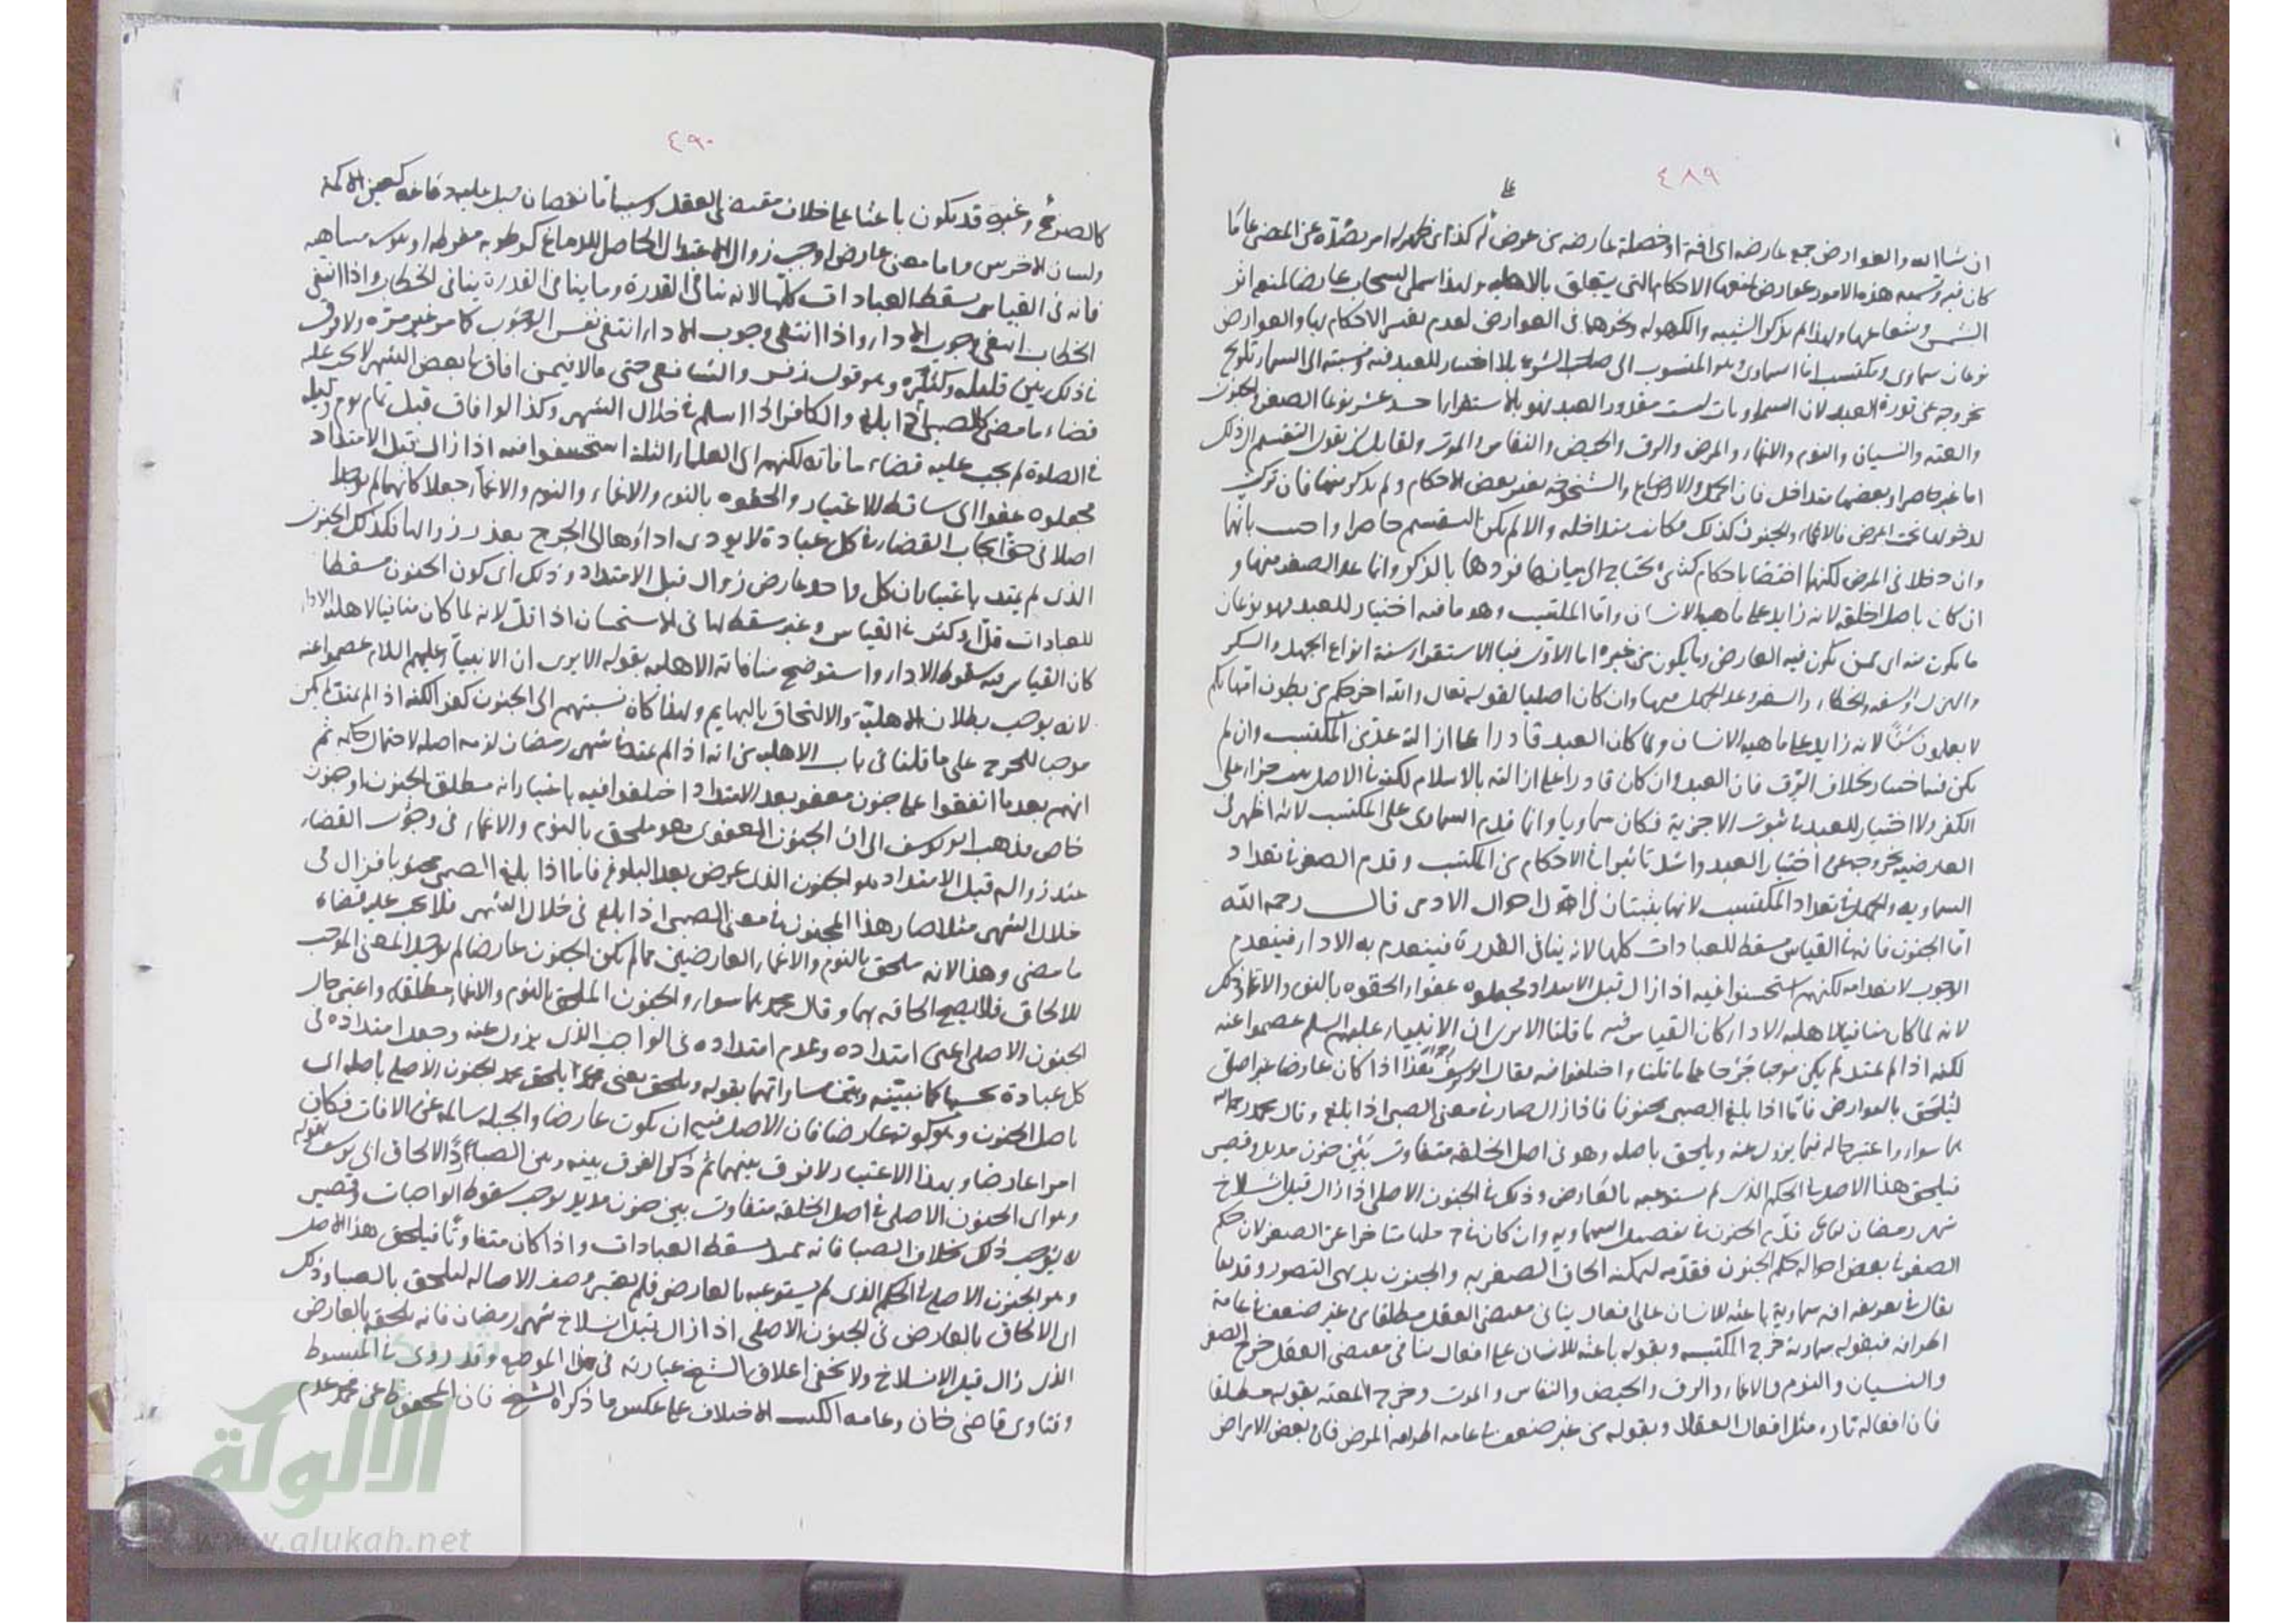 ٤٨٩
ان شاالله والعوارض جمع عارضة اى آفة او خصلة عارضة من عرض له كذا اى ظهر له امر يصده عن المضى على ما
كان فيه وتسمية هذه الامور عوارض لمنعها الاحكام التى يتعلق بالاهلية ولهذا سمى السحاب عارضا لمنعه اثر
الشمس وشعاعها ولهذا لم يذكر الشيبة والكهولة ونحوهما فى العوارض لعدم تغير الاحكام بها والعوارض
نوعان سماوى ومكتسب اما السماوى وهو المنسوب الى صاحب الشرع بلا اختيار للعبد فيه ونسبته الى السماء تلويح
بخروجه عن قدرة العبد لان السماويات ليست مقدور العبد فهو بالاستقراء احد عشر نوعا الصغر والجنون
والعته والنسيان والنوم والاغماء والمرض والرق والحيض والنفاس والموت ولقايل ان يقول التقسيم الى ذلك
اما غير حاصر او بعضها متداخل فان الحمل والارضاع والشيخوخة يغير بعض الاحكام ولم يذكر منها فان تركت
لدخولها تحت المرض فالاغماء والجنون كذلك فكانت متداخلة والا لم يكن التقسيم حاصرا واجيب بانهما
وان دخلا فى المرض لكنهما اختصا باحكام كثيرة يحتاج الى بيانها فافردها بالذكر وانما عد الصغر منها و
ان كان باصل الخلقة لانه زايد على ماهية الانسان واما المكتسب وهو ما فيه اختيار للعبد فهو نوعان
ما يكون منه اى ممن يكون فيه العارض وما يكون من غيره اما الاول فبالاستقراء ستة انواع الجهل والسكر
والهزل والسفه والخطاء والسفر وعد الجهل منها وان كان اصليا لقوله تعالى والله اخرجكم من بطون امهاتكم
لا تعلمون شيئا لانه زايد على ماهية الانسان ولما كان العبد قادرا على ازالته عد من المكتسب وان لم
يكن فيه اختيار بخلاف الرق فان العبد وان كان قادرا على ازالته بالاسلام لكنه فى الاصل يثبت جزاء على
الكفر ولا اختيار للعبد فى ثبوت الاجزية فكان سماويا وانما قدم السماوى على المكتسب لانه اظهر فى
العارضية بخروجه عن اختيار العبد واشد تاثيرا فى الاحكام من المكتسب وقدم الصغر فى تعداد
السماوية والجهل فى تعداد المكتسب لانهما يثبتان فى اول احوال الادمى قال رحمه الله
اما الجنون فانه فى القياس مسقط للعبادات كلها لانه ينافى القدرة فينعدم به الاداء فينعدم
الوجوب لانعدامه لكنهم استحسنوا فيه اذا زال قبل الامتداد فجعلوه عفوا والحقوه بالنوم والاغماء وذلك
لانه لما كان منافيا لاهلية الاداء كان القياس فيه ما قلنا الا يرى ان الانبياء عليهم السلم عصموا عنه
لكنه اذا لم يمتد لم يكن موجبا حرجا على ما قلنا واختلفوا فيه فقال ابو يوسف هذا اذا كان عارضا غير اصلى
ليلحق بالعوارض فاما اذا بلغ الصبى مجنونا فاذا زال صار فى معنى الصبى اذا بلغ وقال محمد رحمه الله
هما سواء واعتبر حاله فيما يزول عنه ويلحق باصله وهو فى اصل الخلقة متفاوت بين جنون مديد وقصير
فيلحق هذا الاصل فى الحكم الذى لم يستوعبه بالعارض وذلك فى الجنون الاصلى اذا زال قبل انسلاخ
شهر رمضان قدم الجنون فى تفصيل السماوية وان كان متاخرا عن الصغر لان حكم
الصغر فى بعض احواله حكم الجنون فقدمه ليمكنه الحاق الصغر به والجنون بديهى التصور وقد
يقال فى تعريفه انه سماوية باعثة للانسان على افعال ينافى مقتضى العقل مطلقا من غير ضعف فى عامة
اطرافه فبقوله سماوية خرج المكتسبة وبقوله باعثة للانسان على افعال ينافى مقتضى العقل خرج الصغر
والنسيان والنوم والاغماء والرق والحيض والنفاس والموت وخرج العته بقوله مطلقا
فان افعاله تارة مثل افعال العقلاء وبقوله من غير ضعف فى عامة اطرافه المرض فان بعض الامراض
٤٩٠
كالصرع وغيره قد يكون باعثا على خلاف مقتضى العقل وسببه اما نقصان جبل عليه دماغه كعين الاكمه
ولسان الاخرس واما معنى عارض اوجب زوال الاعتدال الحاصل للدماغ كرطوبة مفرطة او يبوسة متناهية
فانه فى القياس مسقط العبادات كلها لانه ينافى القدرة وما ينافى القدرة ينافى الخطاب واذا انتفى
الخطاب انتفى وجوب الاداء واذا انتفى وجوب الاداء انتفى نفس الوجوب كما مر غير مرة ولا فرق
فى ذلك بين قليله وكثيره وهو قول زفر والشافعى حتى قالا فيمن افاق فى بعض الشهر لا يجب عليه
قضاء ما مضى كالصبى اذا بلغ والكافر اذا اسلم فى خلال الشهر وكذا لو افاق قبل تمام يوم وليلة
فى الصلوة لم يجب عليه قضاء ما فاته لكنهم اى العلماء الثلثة استحسنوا فيه اذا زال قبل الامتداد
فجعلوه عفوا اى ساقط الاعتبار والحقوه بالنوم والاغماء والنوم والاغماء جعلا كانهما لم يوجدا
اصلا فى حق ايجاب القضاء فى كل عبادة لا يودى اداؤها الى الحرج بعد زوالها فكذلك الجنون
الذى لم يمتد باعتبار ان كل واحد عارض زوال قبل الامتداد وذلك اى كون الجنون مسقطا
للعبادات قل او كثر فى القياس وغير مسقط لها فى الاستحسان اذا قل لانه لما كان منافيا لاهلية الاداء
كان القياس فيه سقوط الاداء واستوضح منافاته الاهلية بقوله الا يرى ان الانبياء عليهم السلام عصموا عنه
لانه يوجب بطلان الاهلية والالتحاق بالبهايم ولهذا كان نسبتهم الى الجنون كفرا لكنه اذا لم يمتد لم يكن
موجبا للحرج على ما قلنا فى باب الاهلية من انه اذا لم يمتد فى شهر رمضان لزمه اصله لاحتمال حكمه ثم
انهم بعد ما اتفقوا على جنون معفو بعد الامتداد اختلفوا فيه باعتبار انه مطلق الجنون او جنون
خاص فذهب ابو يوسف الى ان الجنون المعفو هو ملحق بالنوم والاغماء فى وجوب القضاء
عند زواله قبل الامتداد هو الجنون الذى عرض بعد البلوغ فاما اذا بلغ الصبى مجنونا فزال فى
خلال الشهر مثلا صار هذا المجنون فى معنى الصبى اذا بلغ فى خلال الشهر فلا يجب عليه قضاء
ما مضى وهذا لانه ملحق بالنوم والاغماء العارضين فما لم يكن الجنون عارضا لم يوجد المعنى الموجب
للالحاق فلا يصح الحاقه بهما وقال محمد هما سواء والجنون الملحق بالنوم والاغماء مطلقه واعتبر حال
الجنون الاصلى اعنى امتداده وعدم امتداده فى الواجب الذى يزول عنه وجعل امتداده فى
كل عبادة بحسبها كما نبينه وبين مساواتهما بقوله ويلحق باصله يعنى محمدا يلحق الجنون الاصلى باصله اى
باصل الجنون وهو كونه عارضا فان الاصل فيه ان يكون عارضا والجبلة سالمة عن الافات فكان
امرا عارضا وبهذا الاعتبار لا فرق بينهما ثم ذكر الفرق بينه وبين الصبا ردا لالحاق ابى يوسف بقوله
وهو اى الجنون الاصلى فى اصل الخلقة متفاوت بين جنون مديد يوجب سقوط الواجبات وقصير
لا يوجب ذلك بخلاف الصبا فانه ممتد يسقط العبادات واذا كان متفاوتا فيلحق هذا الاصل
وهو الجنون الاصلى فى الحكم الذى لم يستوعبه بالعارض فلم يعتبر وصف الاصالة ليلحق بالصبا وذلك
اى الالحاق بالعارض فى الجنون الاصلى اذا زال قبل انسلاخ شهر رمضان فانه يلحق بالعارض
الذى زال قبل الانسلاخ ولا يخفى اغلاق الشيخ عبارته فى هذا الموضع وقد روى فى المبسوط
وفتاوى قاضى خان وعامة الكتب الاختلاف على عكس ما ذكره الشيخ فان المحفوظ عن محمد عدم
شبكة
الألوكة
www.alukah.net